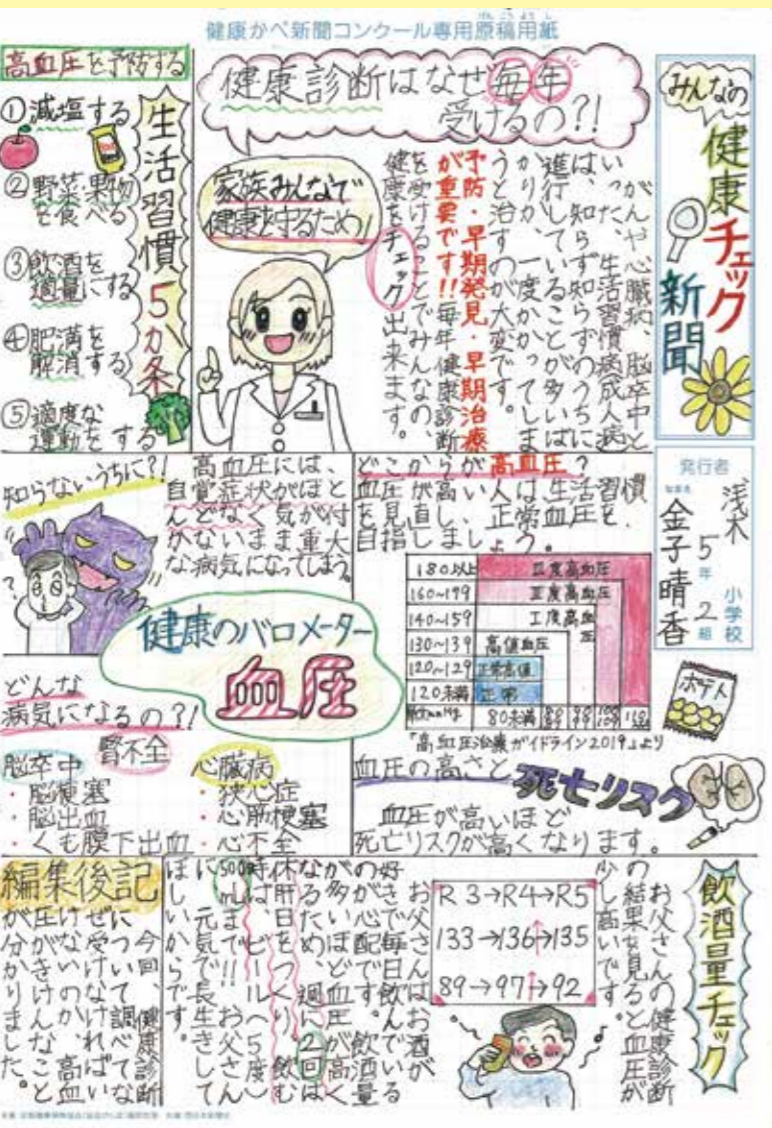 健康かべ新聞コンクール専用原稿用紙
みんなの
健康チェック
新聞
発行者
浅木
小学校
5年2組
金子晴香
健康診断はなぜ毎年
受けるの?!
家族みんなで
健康を守るため!
がんや心臓病、脳卒中と
いった、生活習慣病(成人病)
は、知らず知らずのうちに
進行していることが多いば
かりか、一度かかってしま
うと治すのが大変です。
予防・早期発見・早期治療
が重要です!!毎年健康診断
を受けることでみんなの、
健康をチェック出来ます。
高血圧を予防する
生活習慣5か条
①減塩する
②野菜果物
を食べる
③飲酒を
適量にする
④肥満を
解消する
⑤適度な
運動をする
どこからが高血圧?
血圧が高い人は、生活習慣
を見直し、正常血圧を
目指しましょう。
180以上 Ⅲ度高血圧
160~179 Ⅱ度高血圧
140~159 Ⅰ度高血圧
130~139 高値血圧
120~129 正常高値
120未満 正常
80未満
「高血圧治療ガイドライン2019」より
知らないうちに?!
高血圧には、
自覚症状がほと
んどなく気が付
かないまま重大
な病気になってしまう。
健康のバロメーター
血圧
どんな
病気になるの?!
脳卒中
・脳梗塞
・脳出血
・くも膜下出血
腎不全
心臓病
・狭心症
・心筋梗塞
・心不全
ポテト
血圧の高さと死亡リスク
血圧が高いほど
死亡リスクが高くなります。
飲酒量チェック
お父さんの健康診断
の結果を見ると血圧が
少し高いです。
R3→R4→R5
133→136→135
89→97→92
お父さんはお酒が
好きで毎日飲んでいる
のが心配です。飲酒量
が多いほど血圧が高く
なるため、週に2回は
休肝日をつくり、飲む
時は、ビール(5度)
500mLまで!!お父さん
に元気で長生きして
ほしいからです。
編集後記
今回、健康診断
について調べてな
ぜ受けなければい
けないのか、高血
圧がきけんなこと
が分かりました。